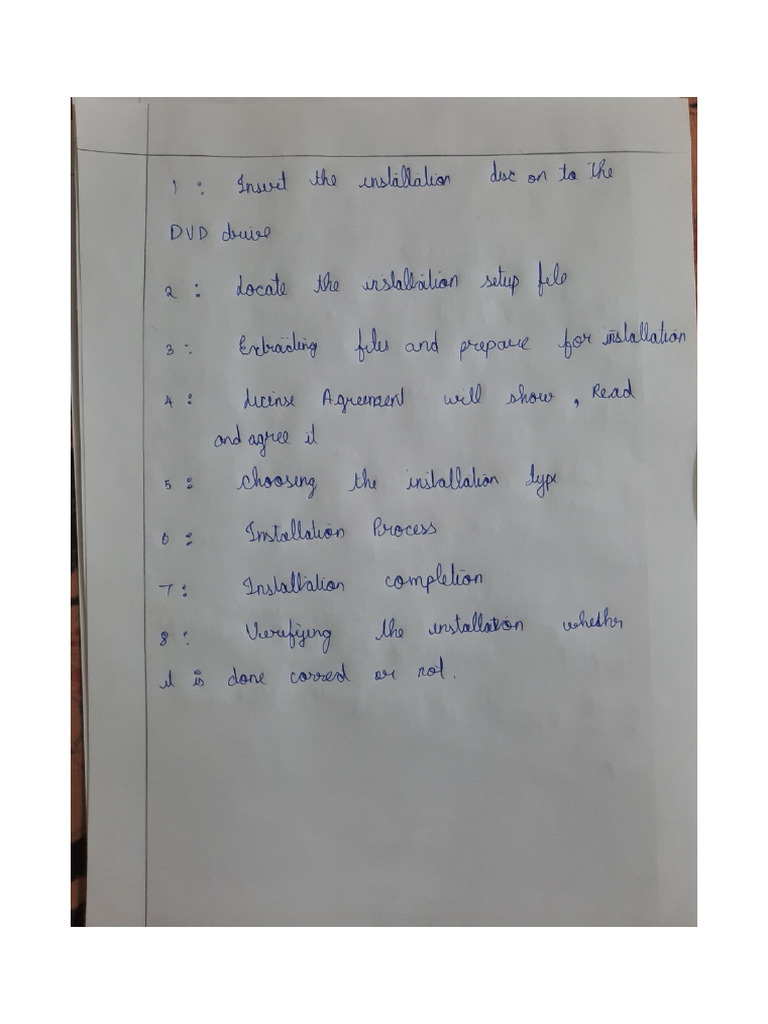 1 : Insert the installation disc on to the
DVD drive
2 : Locate the installation setup file
3 : Extracting files and prepare for installation
4 : License Agreement will show, Read
and agree it
5 : Choosing the installation type
6 : Installation Process
7 : Installation completion
8 : Verifying the installation whether
it is done correct or not.